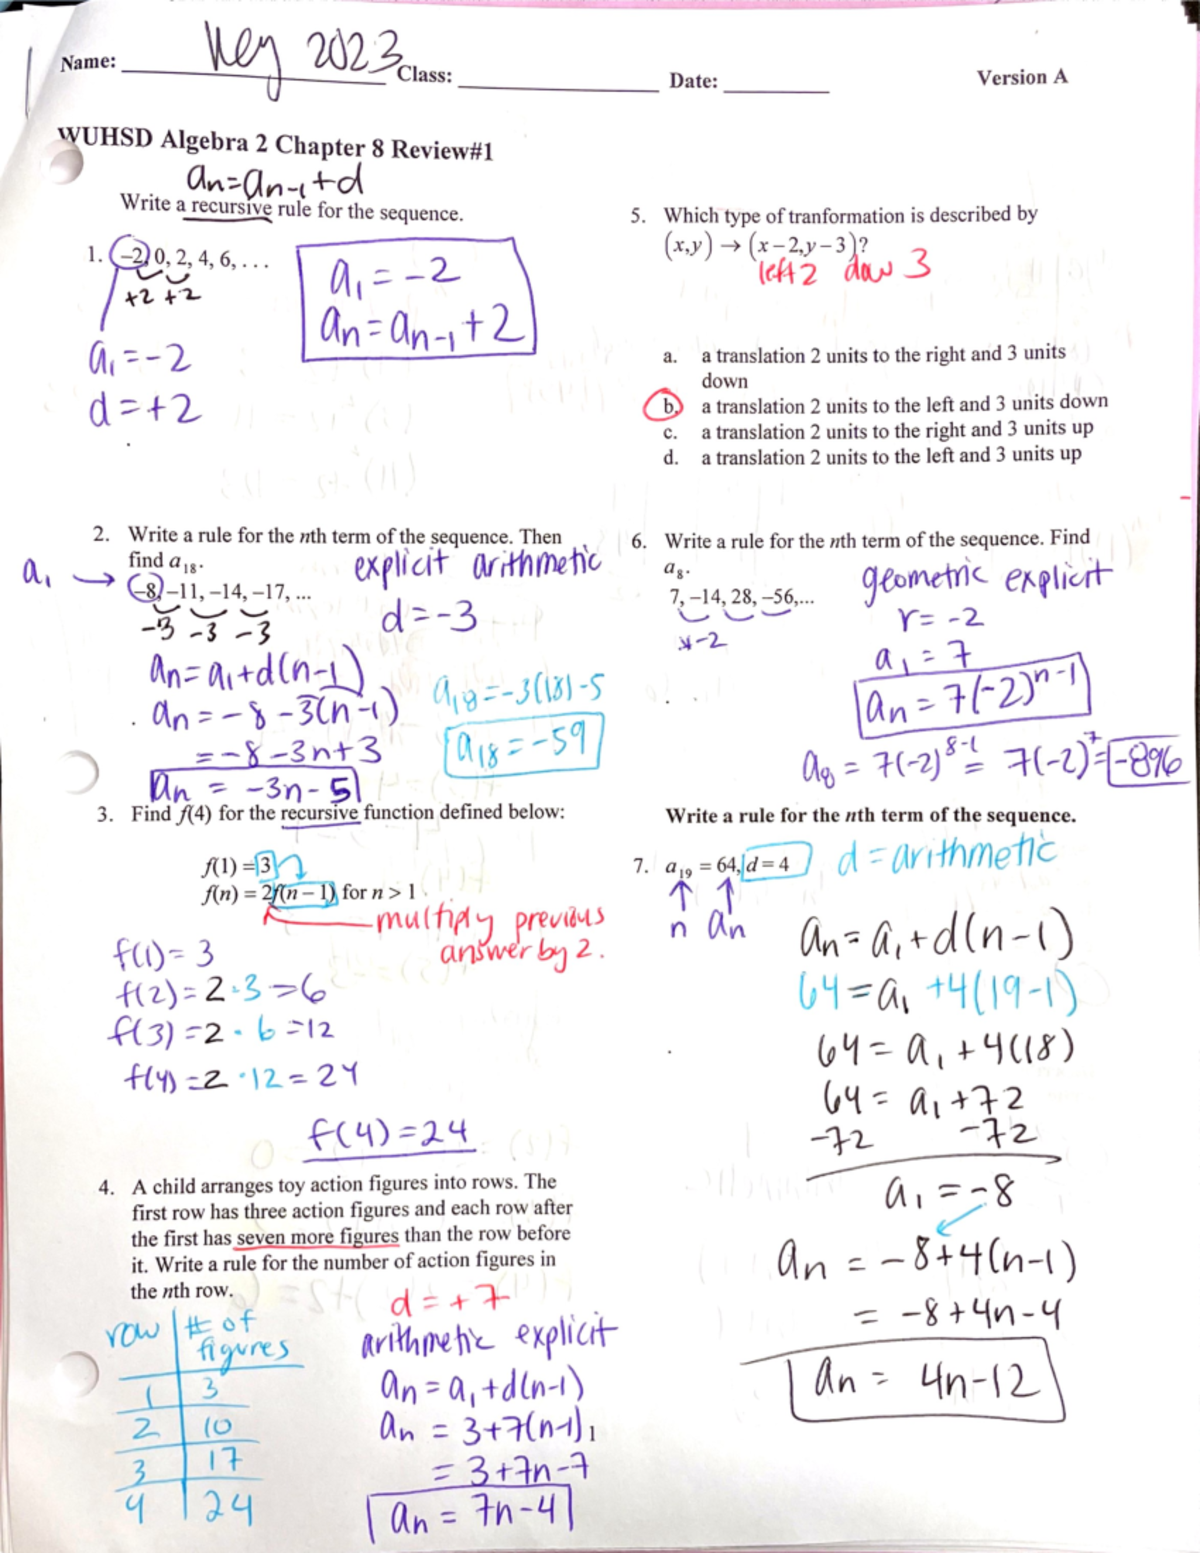 Name: Key 2023 Class: Date: Version A
WUHSD Algebra 2 Chapter 8 Review#1
an=an-1+d
Write a recursive rule for the sequence.
1. -2, 0, 2, 4, 6, . . .
+2 +2
a1=-2
d=+2
a1=-2
an=an-1+2
2. Write a rule for the nth term of the sequence. Then
find a18.
explicit arithmetic
a1 → -8, -11, -14, -17, ...
-3 -3 -3
d=-3
an=a1+d(n-1)
an=-8-3(n-1)
=-8-3n+3
an = -3n-5
a18=-3(18)-5
a18=-59
3. Find f(4) for the recursive function defined below:
f(1) = 3
f(n) = 2f(n – 1) for n > 1
multiply previous
answer by 2.
f(1)= 3
f(2)=2·3=6
f(3)=2·6=12
f(4)=2·12=24
f(4)=24
4. A child arranges toy action figures into rows. The
first row has three action figures and each row after
the first has seven more figures than the row before
it. Write a rule for the number of action figures in
the nth row.
d=+7
row # of
figures
1 3
2 10
3 17
4 24
arithmetic explicit
an=a1+d(n-1)
an = 3+7(n-1)
=3+7n-7
an = 7n-4
5. Which type of tranformation is described by
(x,y) → (x–2,y–3)?
left 2 dow 3
a. a translation 2 units to the right and 3 units
down
b. a translation 2 units to the left and 3 units down
c. a translation 2 units to the right and 3 units up
d. a translation 2 units to the left and 3 units up
6. Write a rule for the nth term of the sequence. Find
a8.
geometric explicit
7, –14, 28, –56,...
*-2
r=-2
a1=7
an=7(-2)^n-1
a8=7(-2)^8-1= 7(-2)^7=-896
Write a rule for the nth term of the sequence.
7. a19 = 64, d = 4
d=arithmetic
↑ ↑
n an
an=a1+d(n-1)
64=a1+4(19-1)
64=a1+4(18)
64=a1+72
-72 -72
a1=-8
an=-8+4(n-1)
=-8+4n-4
an= 4n-12